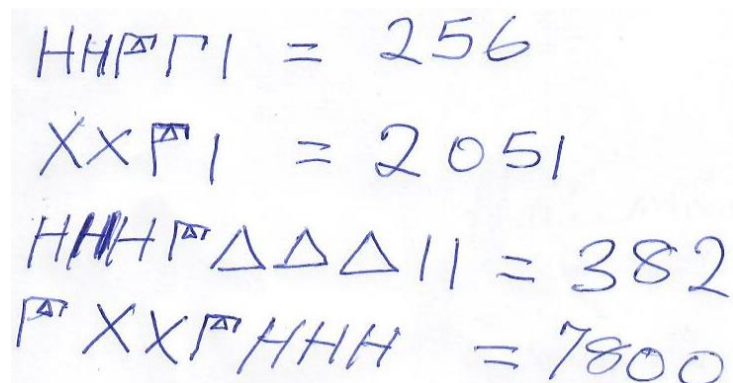 ΗΗ𐅄ΓΙ = 256
ΧΧ𐅄Ι = 2051
ΗΗΗ𐅄ΔΔΔΙΙ = 382
𐅄ΧΧ𐅄ΗΗΗ = 7800